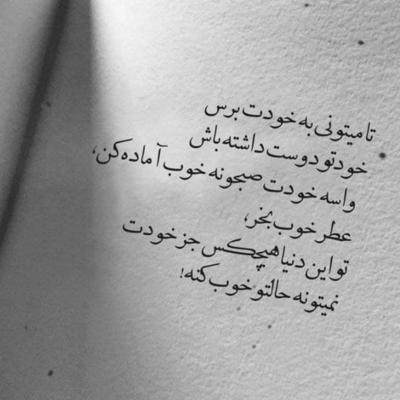 تا میتونی به خودت برس
خودتو دوست داشته باش
واسه خودت صبحونه خوب آماده کن،
عطر خوب بخر،
تو این دنیا هیچکس جز خودت
نمیتونه حالتو خوب کنه!